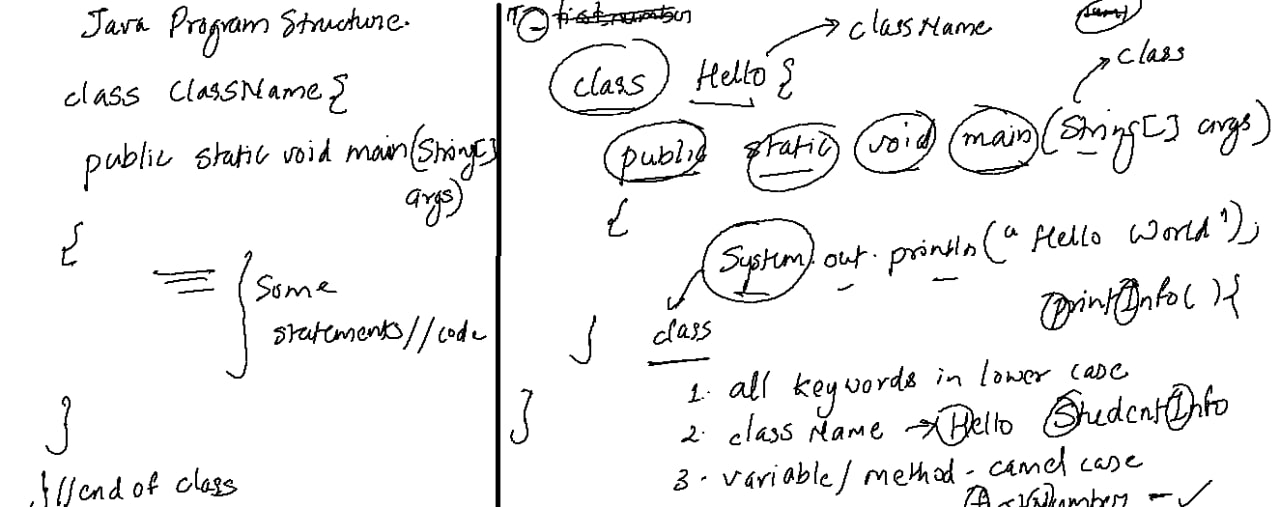 Java Program Structure.
class ClassName {
public static void main(String[]
args)
{
Some
statements//code
}
}//end of class
className
class Hello {
class
public static void main (String[] args)
{
System.out.println("Hello World");
class
printInfo( ) {
}
}
1. all keywords in lower case
2. class Name → Hello StudentInfo
3. variable/method - camel case